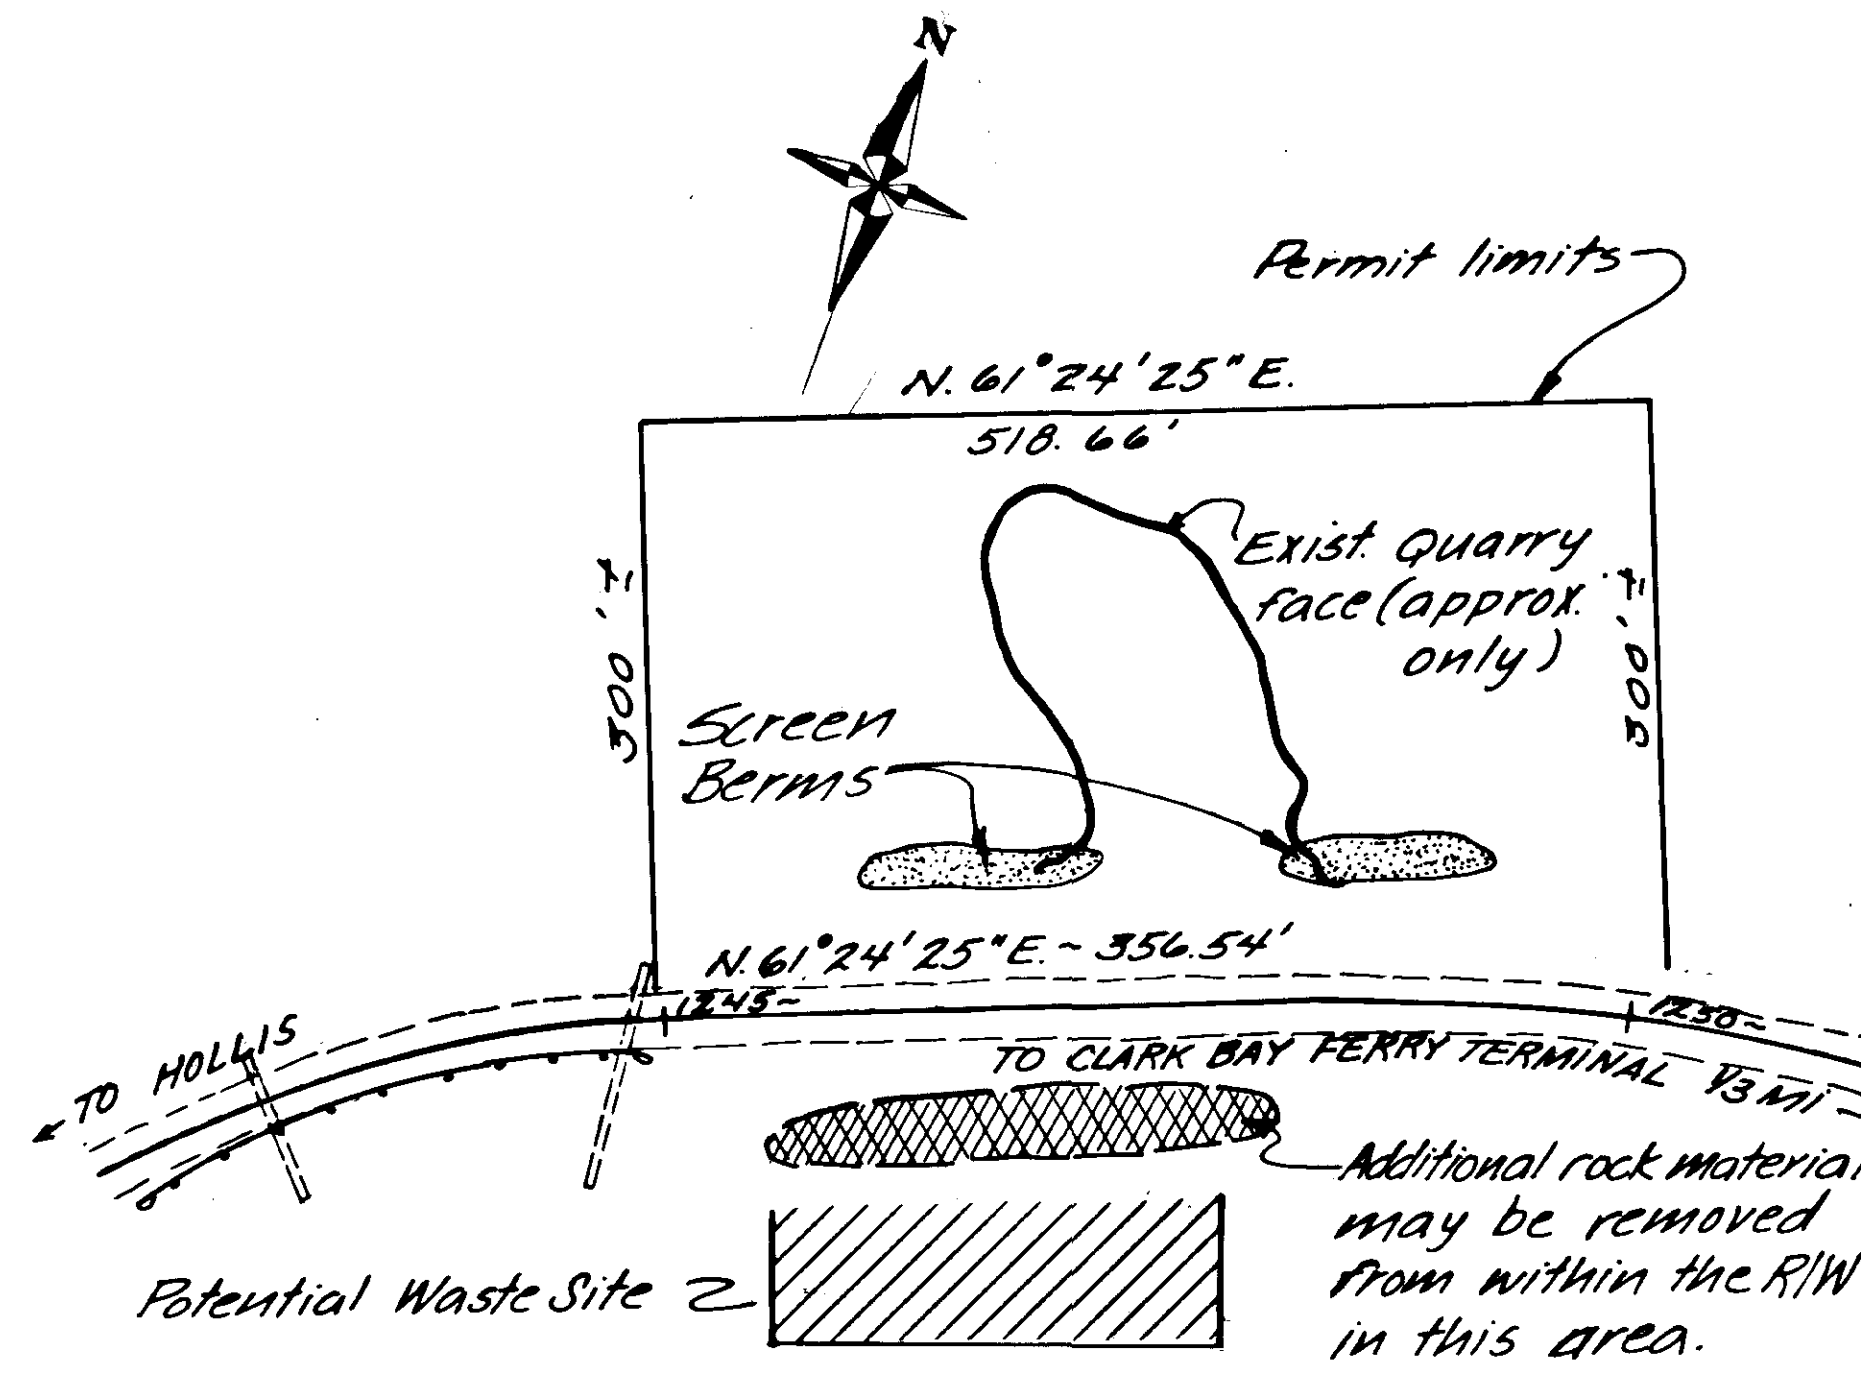 N
Permit limits
N. 61°24'25" E.
518.66'
Exist. Quarry
face (approx.
only)
300' ±
300' ±
Screen
Berms
N. 61°24'25" E. ~ 356.54'
1245~
1250~
TO HOLLIS
TO CLARK BAY FERRY TERMINAL 1/3 MI
Additional rock material
may be removed
from within the R/W
in this area.
Potential Waste Site